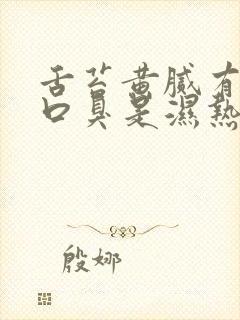 舌苔黄腻有
口臭是濕熱
殷娜